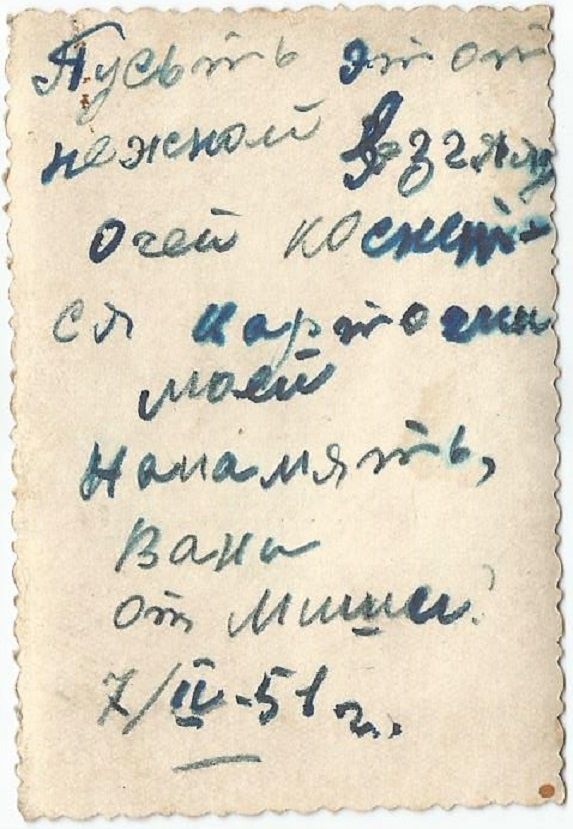 Пусьть этот
нежной взгляд
очей коснеть-
ся карточки
моей
Напамять,
Вани
от Миши.
7/II-51 г.